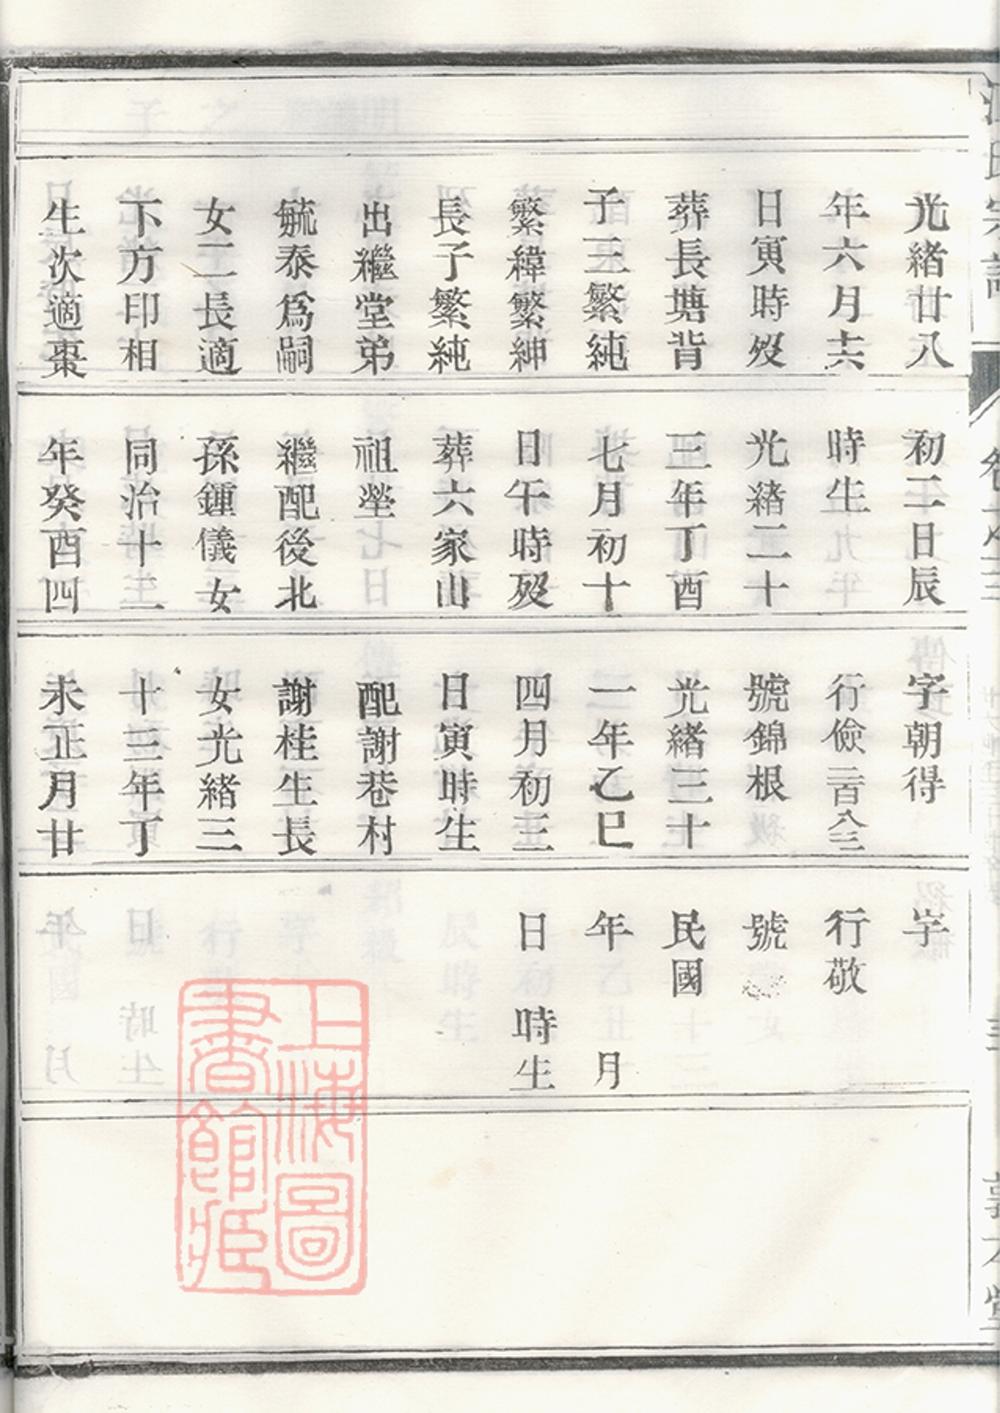 光緒廿八
年六月十六
日寅時歿
葬長塘背
子三繁純
繁緯繁紳
長子繁純
出繼堂弟
毓泰爲嗣
女二長適
下方印相
生次適棗
初二日辰
時生
光緒二十
三年丁酉
七月初十
日午時歿
葬六家山
祖塋
繼配後北
孫鍾儀女
同治十二
年癸酉四
字朝得
行儉三百八三
號錦根
光緒三十
一年乙巳
四月初三
日寅時生
配謝巷村
謝桂生長
女光緒三
十三年丁
未正月廿
字
行敬
號
民國
年 月
日 時生
上海圖
書館藏